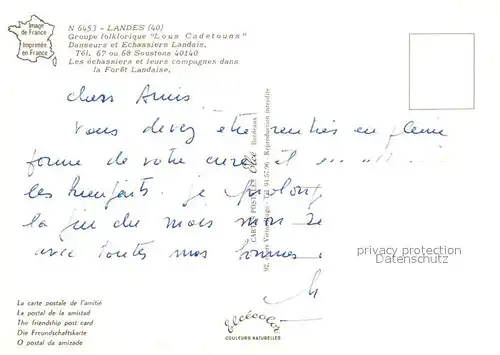 Image
de France
Imprimée
en France
N 6453 - LANDES (40)
Groupe folklorique "Lous Cadetouns"
Danseurs et Echassiers Landais.
Tél. 67 ou 68 Soustons 40140
Les échassiers et leurs compagnes dans
la Forêt Landaise,
chers Amis
Vous devez être rentrés en pleine
forme de votre cure et
les bienfaits. je prolonge
la fin du mois mon
avec toutes mes bonnes
CARTES POSTALES Elcé Bordeaux
Reproduction interdite
privacy protection
Datenschutz
La carte postale de l'amitié
La postal de la amistad
The friendship post card
Die Freundschaftskarte
O postal da amizade
elcécolor
COULEURS NATURELLES